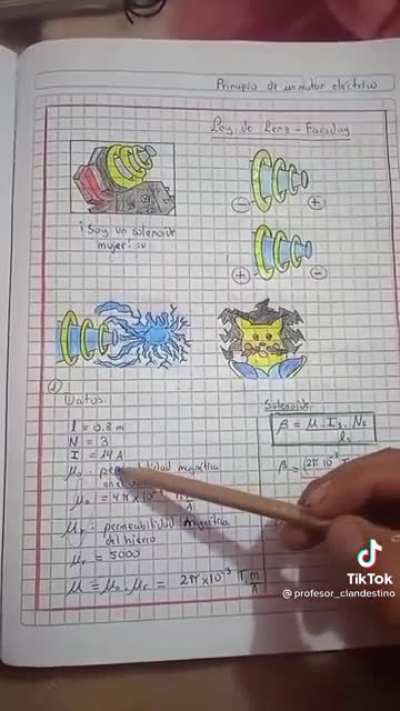 Principio de un motor eléctrico
Ley de Lenz - Faraday
¡Soy un solenoide
mujer! :v
- +
+ -
1)
Datos:
l = 0.8 m
N = 3
I = 14 A
μ₀ : permeabilidad magnética
μ₀ = 4π x 10
A
μr : permeabilidad magnética
del hierro
μr = 5000
μ = μ₀ . μr = 2π x10⁻³ T.m
A
Solenoide
β = μ . I . N
β = (2π 10⁻³
TikTok
@profesor_clandestino